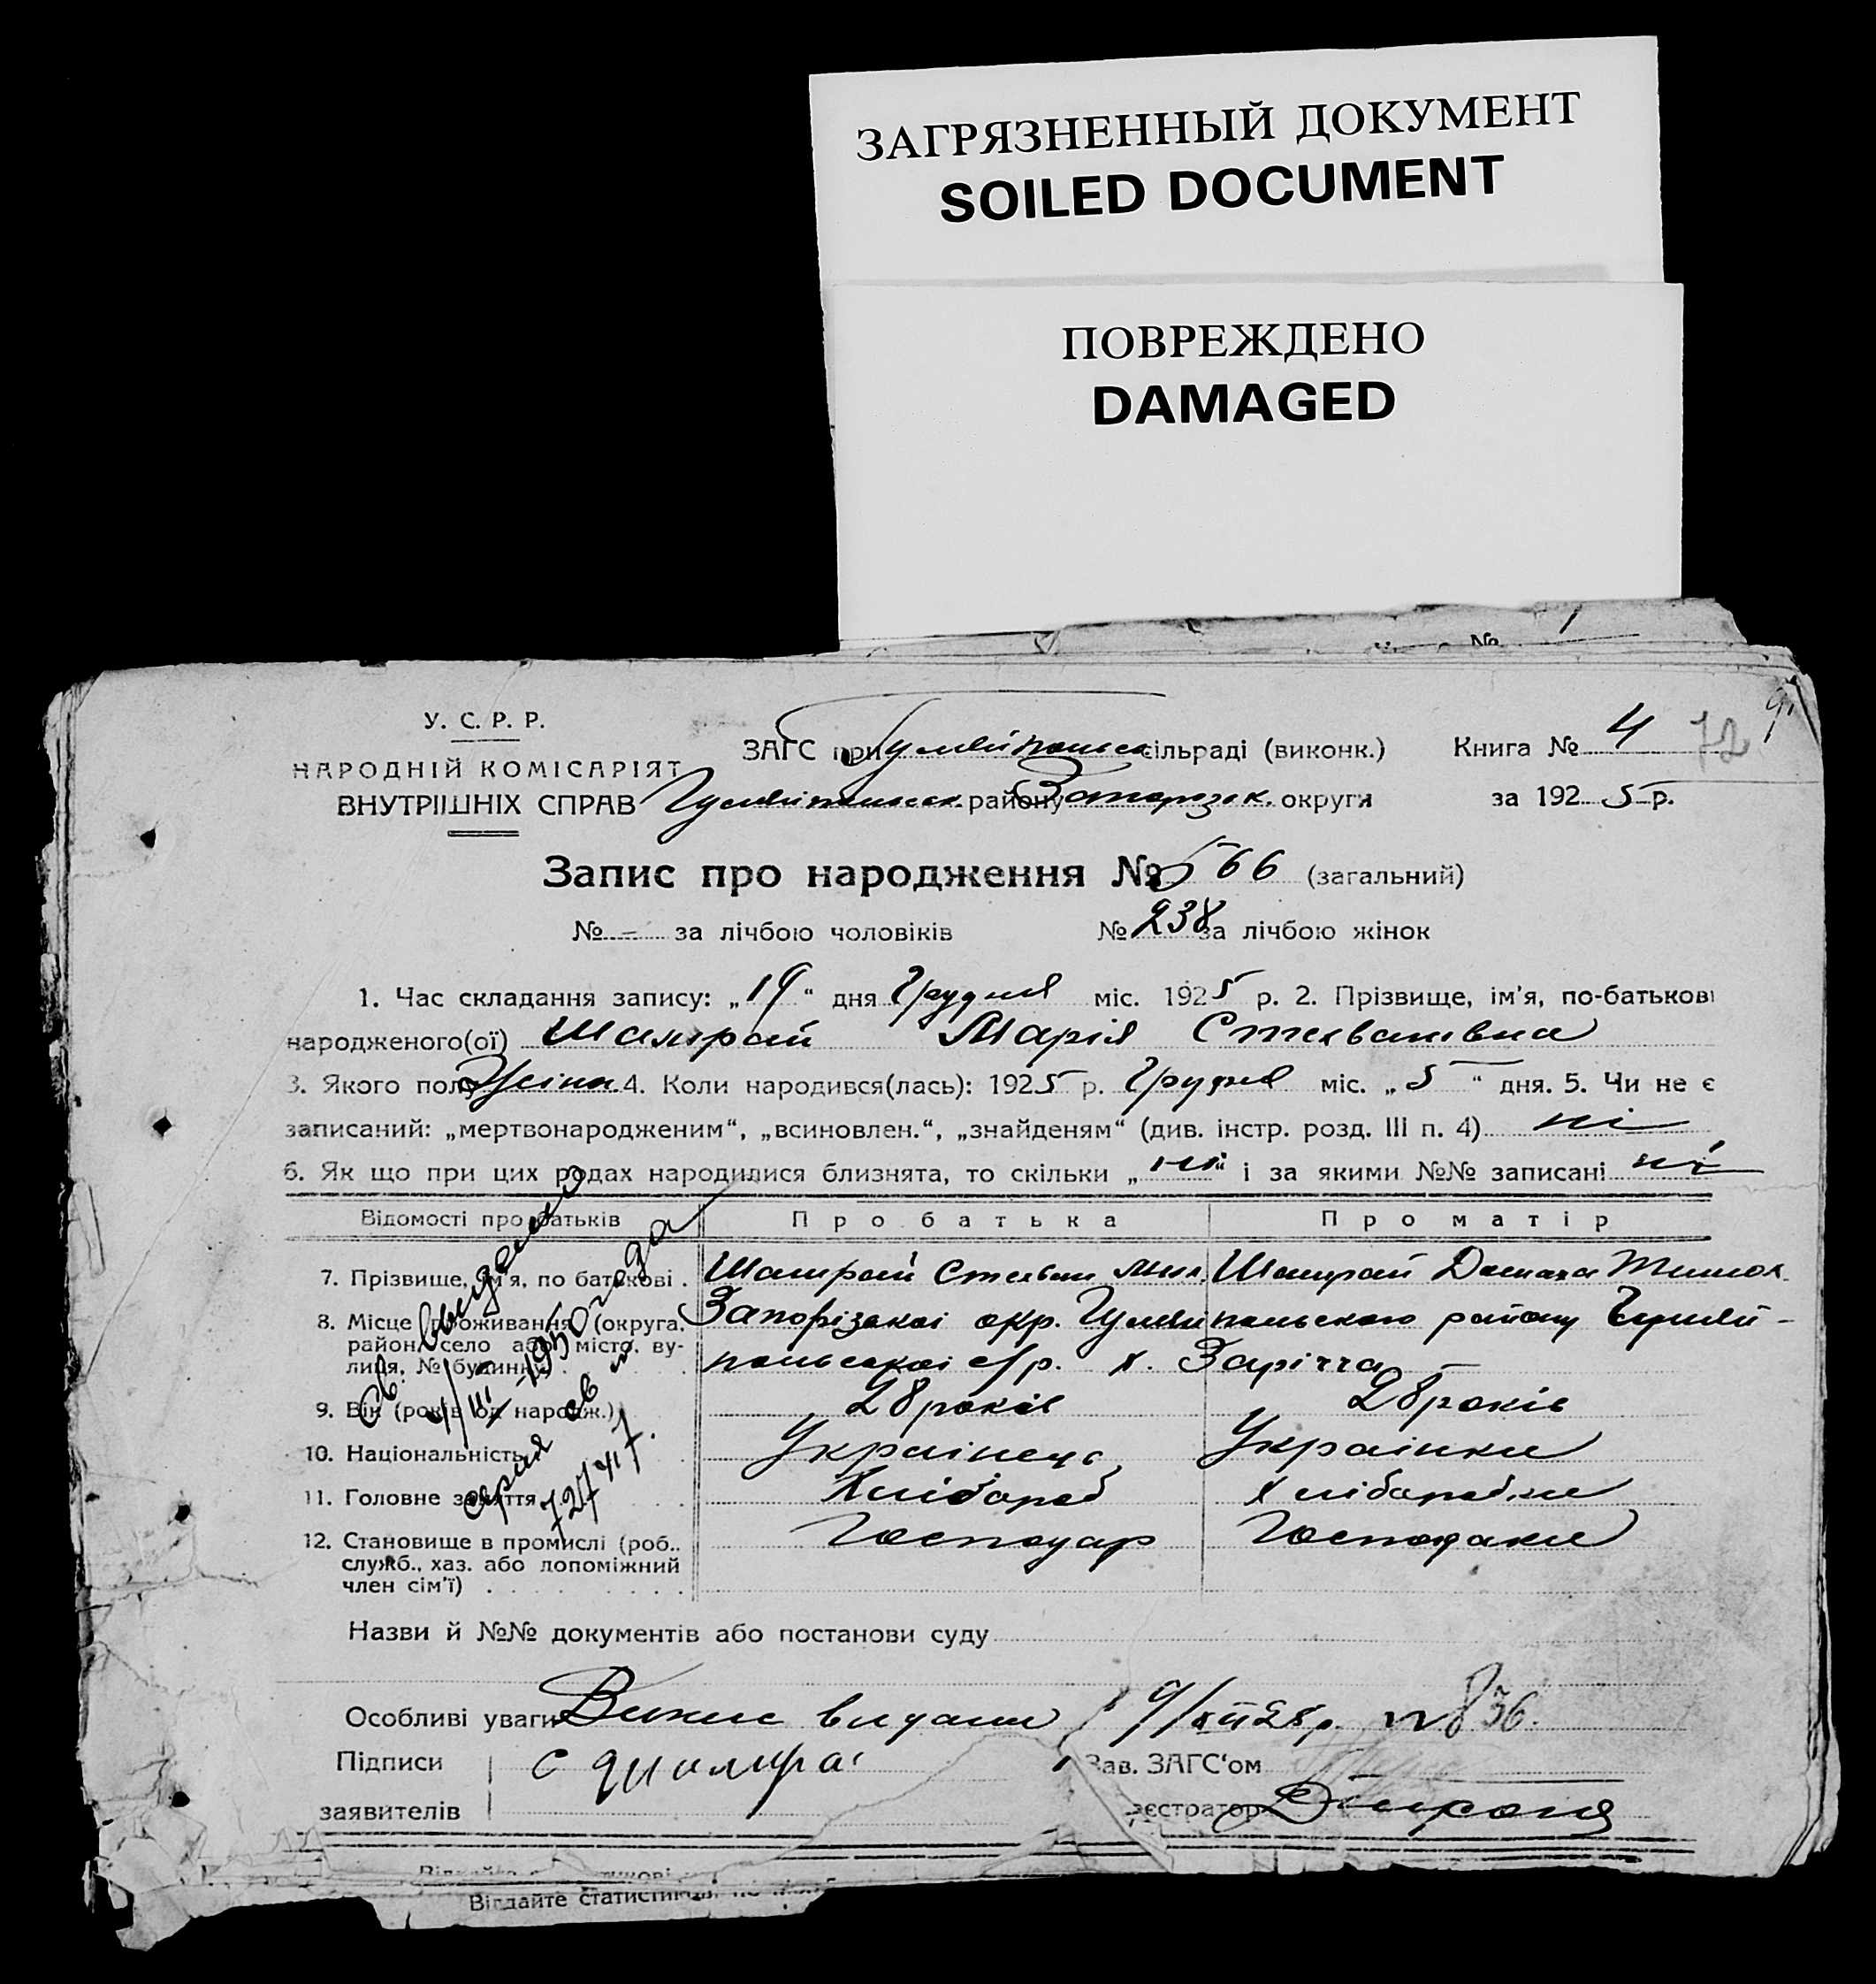 ЗАГРЯЗНЕННЫЙ ДОКУМЕНТ
SOILED DOCUMENT
ПОВРЕЖДЕНО
DAMAGED
№
У. С. Р. Р.
НАРОДНІЙ КОМІСАРІЯТ
ВНУТРІШНІХ СПРАВ
ЗАГС при Гуляйпольск сільраді (виконк.) Книга № 4 72
Гуляйпольск. району Запорізьк. округи за 192 5 р.
Запис про народження № 566 (загальний)
№ – за лічбою чоловіків № 238 за лічбою жінок
1. Час складання запису: „19“ дня Грудня міс. 1925 р. 2. Прізвище, ім'я, по-батькові
народженого(ої) Шамрай Марія Стехванівна
3. Якого полу Жіноч. 4. Коли народився(лась): 1925 р. Грудня міс. „5“ дня. 5. Чи не є
записаний: „мертвонародженим“, „всиновлен.“, „знайденям“ (див. інстр. розд. III п. 4) ні
6. Як що при цих родах народилися близнята, то скільки „ні“ і за якими №№ записані ні
Відомості про батьків Про батька Про матір
7. Прізвище, ім'я, по батькові . Шамрай Стехван Мик. Шамрай Домаха Тимох.
8. Місце проживання (округа, район, село або місто, вулиця, № будинку) Запорізької окр. Гуляйпольского району Гуляй-
польської с/р. х. Зарічча
9. Вік (років од народж.) 28 років 28 років
10. Національність Українець Українка
11. Головне заняття Хлібороб Хліборобка
12. Становище в промислі (роб.. Господар Господарка
служб., хаз. або допоміжний
член сім'ї)
Св. Выдано
4/III-1950 года
серия
727417.
Назви й №№ документів або постанови суду
Особливі уваги видани 9/XII 25 р. № 836.
Підписи Зав. ЗАГС'ом
заявителів реєстратор
Віддайте статистикові